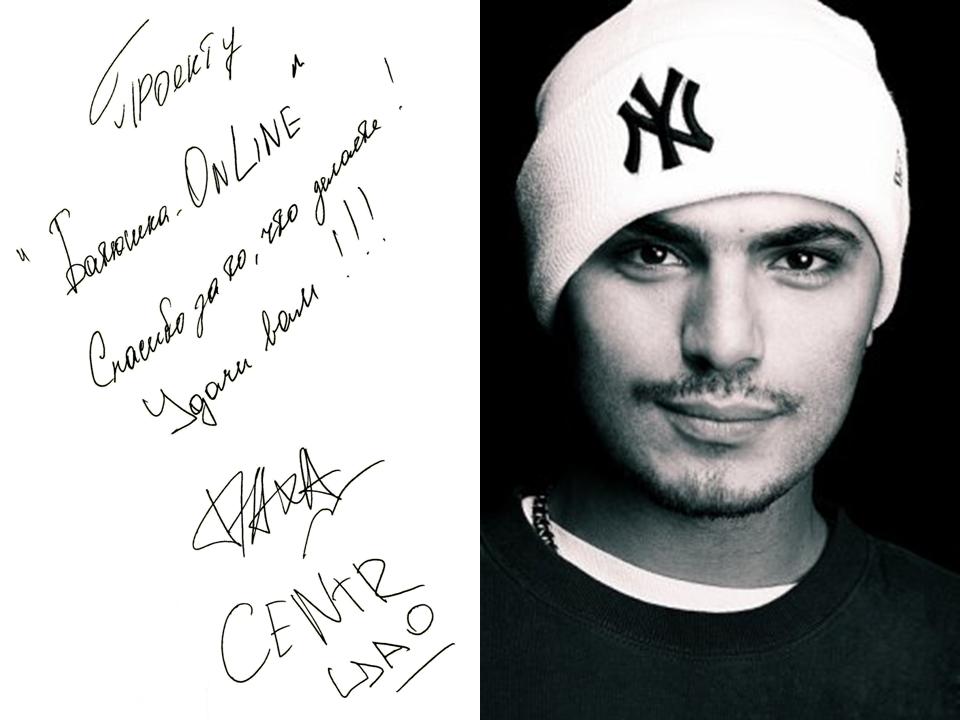 Проекту
"Батюшка. OnLINE"
Спасибо за то, что делаете!
Удачи вам!!!
РАХА
CENTR
ЦАО
NY